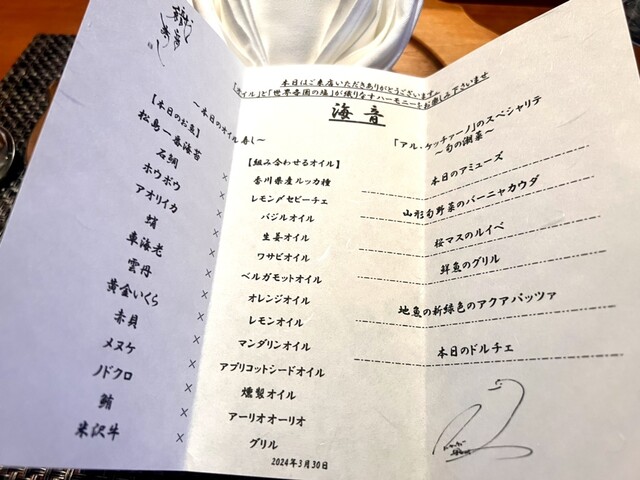 本日はご来店いただきありがとうございます。
『オイル』と『世界各国の塩』が織りなすハーモニーをお楽しみ下さいませ
海音
～本日のオイル寿し～
【本日のお魚】
松島一番海苔
石鯛
ホウボウ
アオリイカ
蛸
車海老
雲丹
黄金いくら
赤貝
メヌケ
ノドクロ
鮪
米沢牛
×
×
×
×
×
×
×
×
×
×
×
×
【組み合わせるオイル】
香川県産ルッカ種
レモン〆セビーチェ
バジルオイル
生姜オイル
ワサビオイル
ベルガモットオイル
オレンジオイル
レモンオイル
マンダリンオイル
アプリコットシードオイル
燻製オイル
アーリオオーリオ
グリル
2024年3月30日
「アル・ケッチァーノ」のスペシャリテ
～旬の潮菜～
本日のアミューズ
山形旬野菜のバーニャカウダ
桜マスのルイベ
鮮魚のグリル
地魚の新緑色のアクアパッツァ
本日のドルチェ